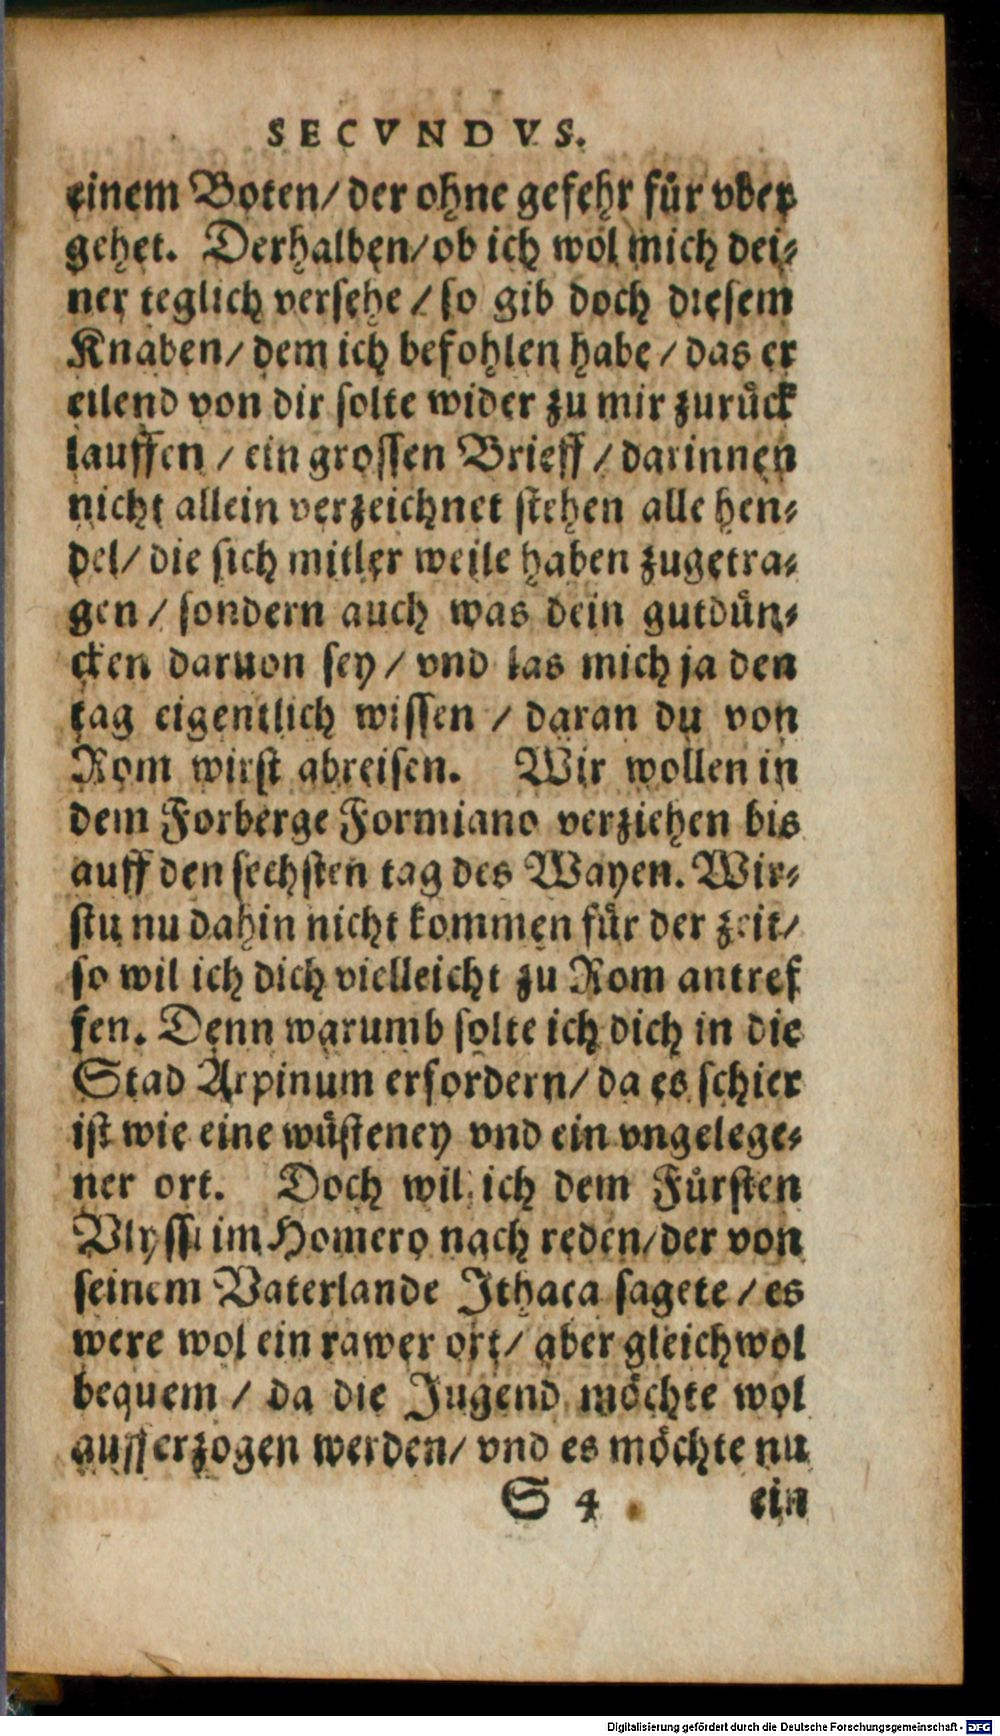 SECVNDVS.
einem Boten/ der ohne gefehr für vber
gehet. Derhalben/ ob ich wol mich dei-
ner teglich versehe / so gib doch diesem
Knaben/ dem ich befohlen habe / das er
eilend von dir solte wider zu mir zurück
lauffen / ein grossen Brieff / darinnen
nicht allein verzeichnet stehen alle hen-
del/ die sich mitler weile haben zugetra-
gen / sondern auch was dein gutdün-
cken daruon sey / vnd las mich ja den
tag eigentlich wissen / daran du von
Rom wirst abreisen. Wir wollen in
dem Forberge Formiano verziehen bis
auff den sechsten tag des Mayen. Wir-
stu nu dahin nicht kommen für der zeit/
so wil ich dich vielleicht zu Rom antref
fen. Denn warumb solte ich dich in die
Stad Arpinum erfordern/ da es schier
ist wie eine wüsteney vnd ein vngelege-
ner ort. Doch wil ich dem Fürsten
Vlyssi im Homero nach reden/ der von
seinem Vaterlande Ithaca sagete / es
were wol ein rawer ort/ aber gleichwol
bequem / da die Jugend möchte wol
aufferzogen werden/ vnd es möchte nu
S 4 ein
Digitalisierung gefördert durch die Deutsche Forschungsgemeinschaft - DFG